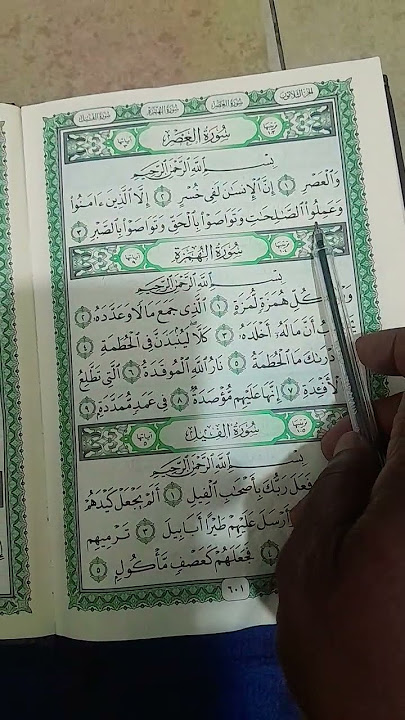 الجزء الثلاثون سورة العصر سورة الهمزة سورة الفيل
سُورَةُ العَصْرِ
بِسْمِ ٱللَّهِ ٱلرَّحْمَٰنِ ٱلرَّحِيمِ
وَٱلْعَصْرِ ١ إِنَّ ٱلْإِنسَٰنَ لَفِى خُسْرٍ ٢ إِلَّا ٱلَّذِينَ ءَامَنُوا۟
وَعَمِلُوا۟ ٱلصَّٰلِحَٰتِ وَتَوَاصَوْا۟ بِٱلْحَقِّ وَتَوَاصَوْا۟ بِٱلصَّبْرِ ٣
سُورَةُ الهُمَزَةِ
بِسْمِ ٱللَّهِ ٱلرَّحْمَٰنِ ٱلرَّحِيمِ
كُلِّ هُمَزَةٍ لُّمَزَةٍ ١ ٱلَّذِى جَمَعَ مَالًا وَعَدَّدَهُۥ ٢
أَنَّ مَالَهُۥٓ أَخْلَدَهُۥ ٣ كَلَّا لَيُنۢبَذَنَّ فِى ٱلْحُطَمَةِ ٤
مَا ٱلْحُطَمَةُ ٥ نَارُ ٱللَّهِ ٱلْمُوقَدَةُ ٦ ٱلَّتِى تَطَّلِعُ
ٱلْأَفْـِٔدَةِ ٧ إِنَّهَا عَلَيْهِم مُّؤْصَدَةٌ ٨ فِى عَمَدٍ مُّمَدَّدَةٍۭ ٩
سُورَةُ الفِيلِ
بِسْمِ ٱللَّهِ ٱلرَّحْمَٰنِ ٱلرَّحِيمِ
فَعَلَ رَبُّكَ بِأَصْحَٰبِ ٱلْفِيلِ ١ أَلَمْ يَجْعَلْ كَيْدَهُمْ
أَرْسَلَ عَلَيْهِمْ طَيْرًا أَبَابِيلَ ٣ تَرْمِيهِم
٤ فَجَعَلَهُمْ كَعَصْفٍ مَّأْكُولٍۭ ٥
٦٠١